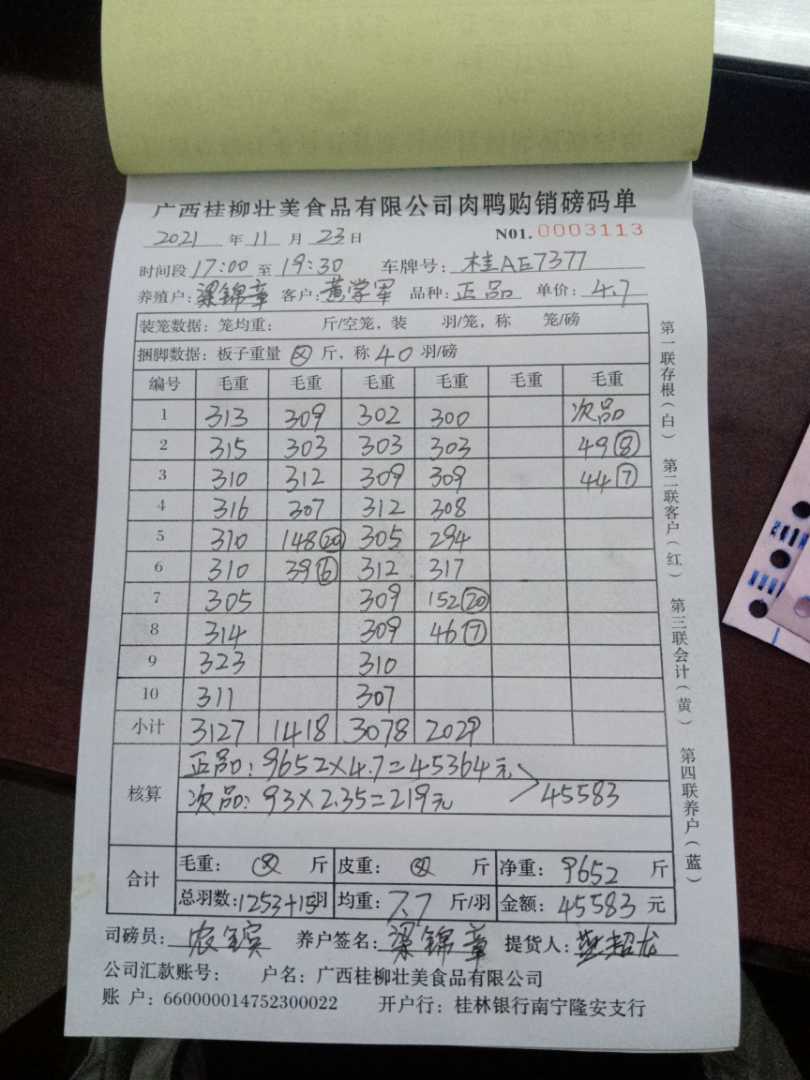 广西桂柳壮美食品有限公司肉鸭购销磅码单
2021 年 11 月 23 日 N01. 0003113
时间段 17:00 至 19:30 车牌号: 桂AE7377
养殖户: 梁锦章 客户: 黄学军 品种: 正品 单价: 4.7
装笼数据: 笼均重: 斤/空笼, 装 羽/笼, 称 笼/磅
捆脚数据: 板子重量 斤, 称 40 羽/磅
编号 毛重 毛重 毛重 毛重 毛重 毛重
1 313 309 302 300 次品
2 315 303 303 303 49⑧
3 310 312 309 309 44⑦
4 316 307 312 308
5 310 148⑳ 305 294
6 310 39⑥ 312 317
7 305 309 152⑳
8 314 309 46⑦
9 323 310
10 311 307
小计 3127 1418 3078 2029
核算 正品: 9652×4.7=45364元
次品: 93×2.35=219元 45583
合计 毛重: 斤 皮重: 斤 净重: 9652 斤
总羽数: 1253+15羽 均重: 7.7 斤/羽 金额: 45583 元
司磅员: 农宾 养户签名: 梁锦章 提货人: 超龙
公司汇款账号: 户名: 广西桂柳壮美食品有限公司
账 户: 660000014752300022 开户行: 桂林银行南宁隆安支行
第一联存根(白) 第二联客户(红) 第三联会计(黄) 第四联养户(蓝)